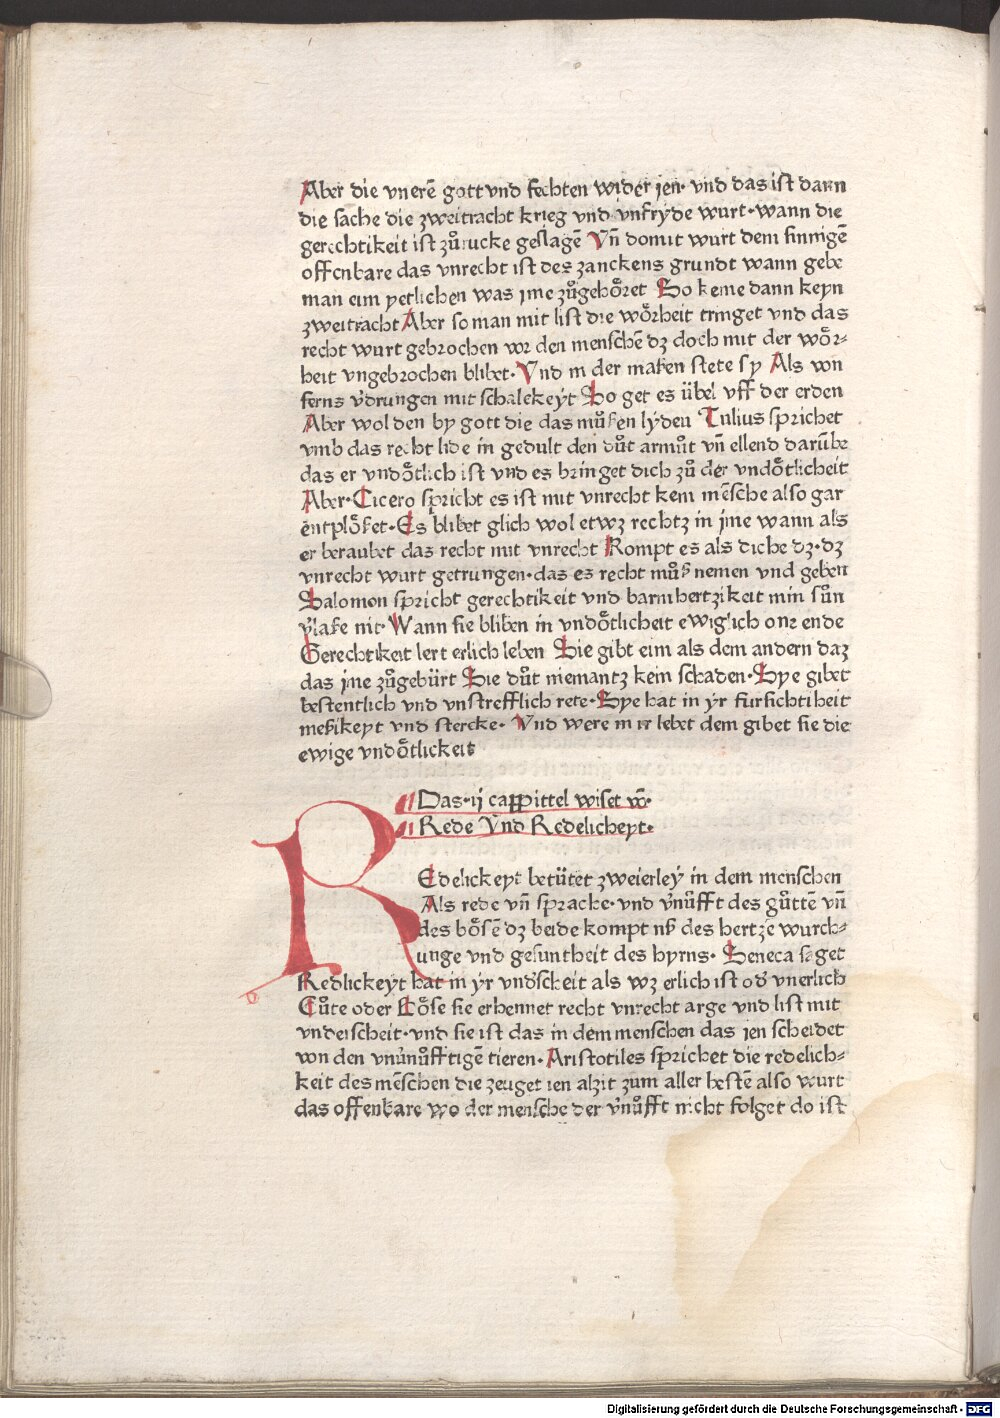 Aber die vnerē gott vnd fechten wider jen· vnd das ist dann
die sache die zweitracht krieg vnd vnfryde wurt·wann die
gerechtikeit ist zůrucke geslagē Vn̄ domit wurt dem sinnigē
offenbare das vnrecht ist des zanckens grundt wann gebe
man eim yetlichen was jme zůgehöret So keme dann keyn
zweitracht Aber so man mit list die wörheit tringet vnd das
recht wurt gebrochen vor den menschē dz doch mit der wör⸗
heit vngebrochen blibet·Vnd in der maßen stete sy Als von
ferns v̓drungen mit schalckeyt So get es übel vff der erden
Aber wol den by gott die das můßen lyden Tulius sprichet
vmb das recht lide in gedult den důt armůt vn̄ ellend darūbe
das er vndötlich ist vnd es bringet dich zů der vndötlicheit
Aber·Cicero spricht es ist mit vnrecht kein mēsche also gar
entplößet·Es blibet glich wol etwz rechtz in jme wann als
er beraubet das recht mit vnrecht Kompt es als diche dz·dz
vnrecht wurt getrungen·das es recht můß nemen vnd geben
Salomon spricht gerechtikeit vnd barmhertzikeit min sůn
v̓laße nit·Wann sie bliben in vndötlicheit ewiglich one ende
Gerechtikeit lert erlich leben Sie gibt eim als dem andern daz
das jme zůgebürt Sie důt niemantz kein schaden·Sye gibet
bestentlich vnd vnstrefflich rete·Sye hat in yr fürsichtikeit
meßikeyt vnd stercke· Vnd were in ir lebet dem gibet sie die
ewige vndötlickeit
Das·ij cappittel wiset vō·
Rede Vnd Redelicheyt·
REdelickeyt betütet zweierley in dem menschen
Als rede vn̄ sprache·vnd v̓nůfft des gůttē vn̄
des bösē dz beide kompt vß des hertze wurch⸗
unge vnd gesuntheit des hyrns· Seneca saget
Redlickeyt hat in yr vnd̓scheit als wz erlich ist od̓ vnerlich
Gůte oder Böse sie erkennet recht vnrecht arge vnd list mit
vnderscheit·vnd sie ist das in dem menschen das jen scheidet
von den vnv̓nůfftigē tieren·Aristotiles sprichet die redelich⸗
keit des mēschen die zeuget ien alzit zum aller bestē also wurt
das offenbare wo der mensche der v̓nůfft nicht folget do ist
Digitalisierung gefördert durch die Deutsche Forschungsgemeinschaft · DFG